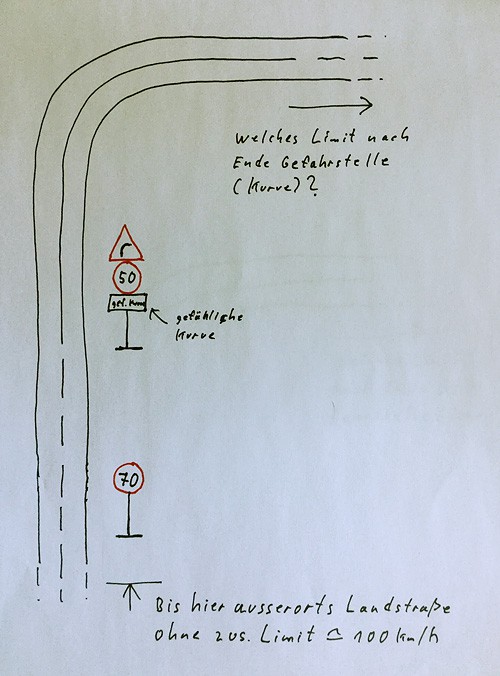 Welches Limit nach
Ende Gefahrstelle
(Kurve)?
50
gef. Kurve
gefähliche
Kurve
70
Bis hier ausserorts Landstraße
ohne zus. Limit ≙ 100 km/h